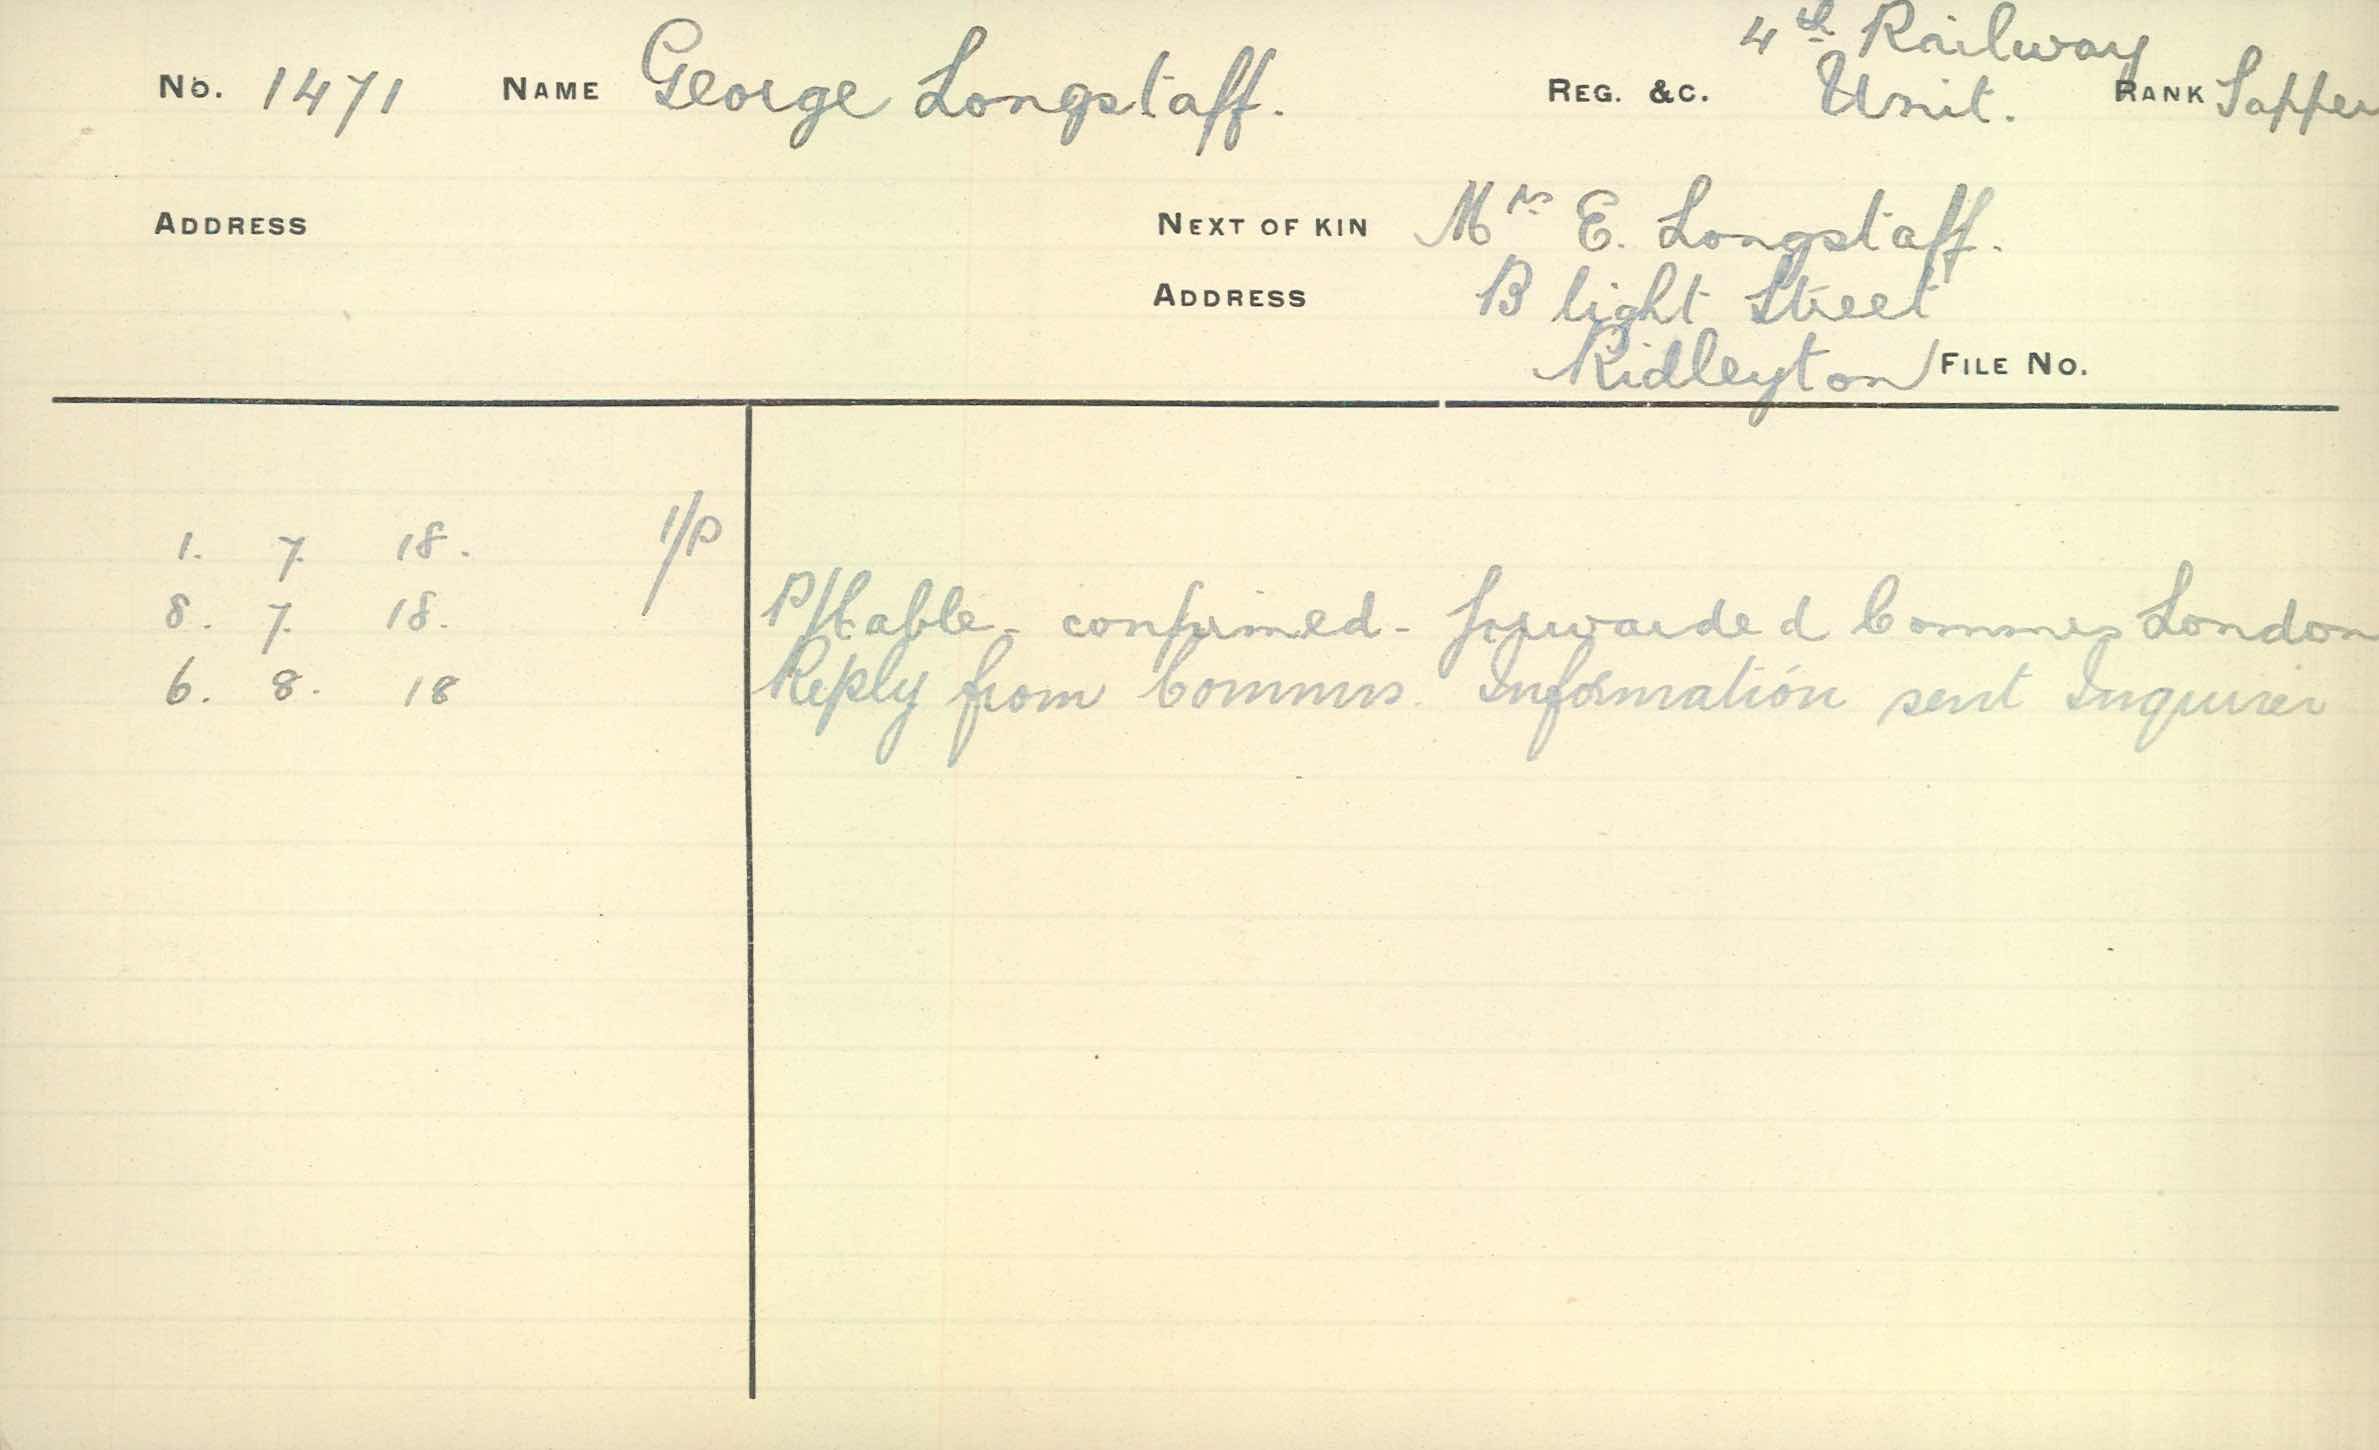 4th Railway
No. 1471 NAME George Longstaff. REG. &C. Unit. RANK Sapper
ADDRESS NEXT OF KIN Mrs E. Longstaff.
ADDRESS Blight Street
Ridleyton FILE No.
1. 7. 18. I/P
8. 7. 18. P/Cable - confirmed - forwarded Commrs London
6. 8. 18 Reply from Commrs. Information sent Inquirer